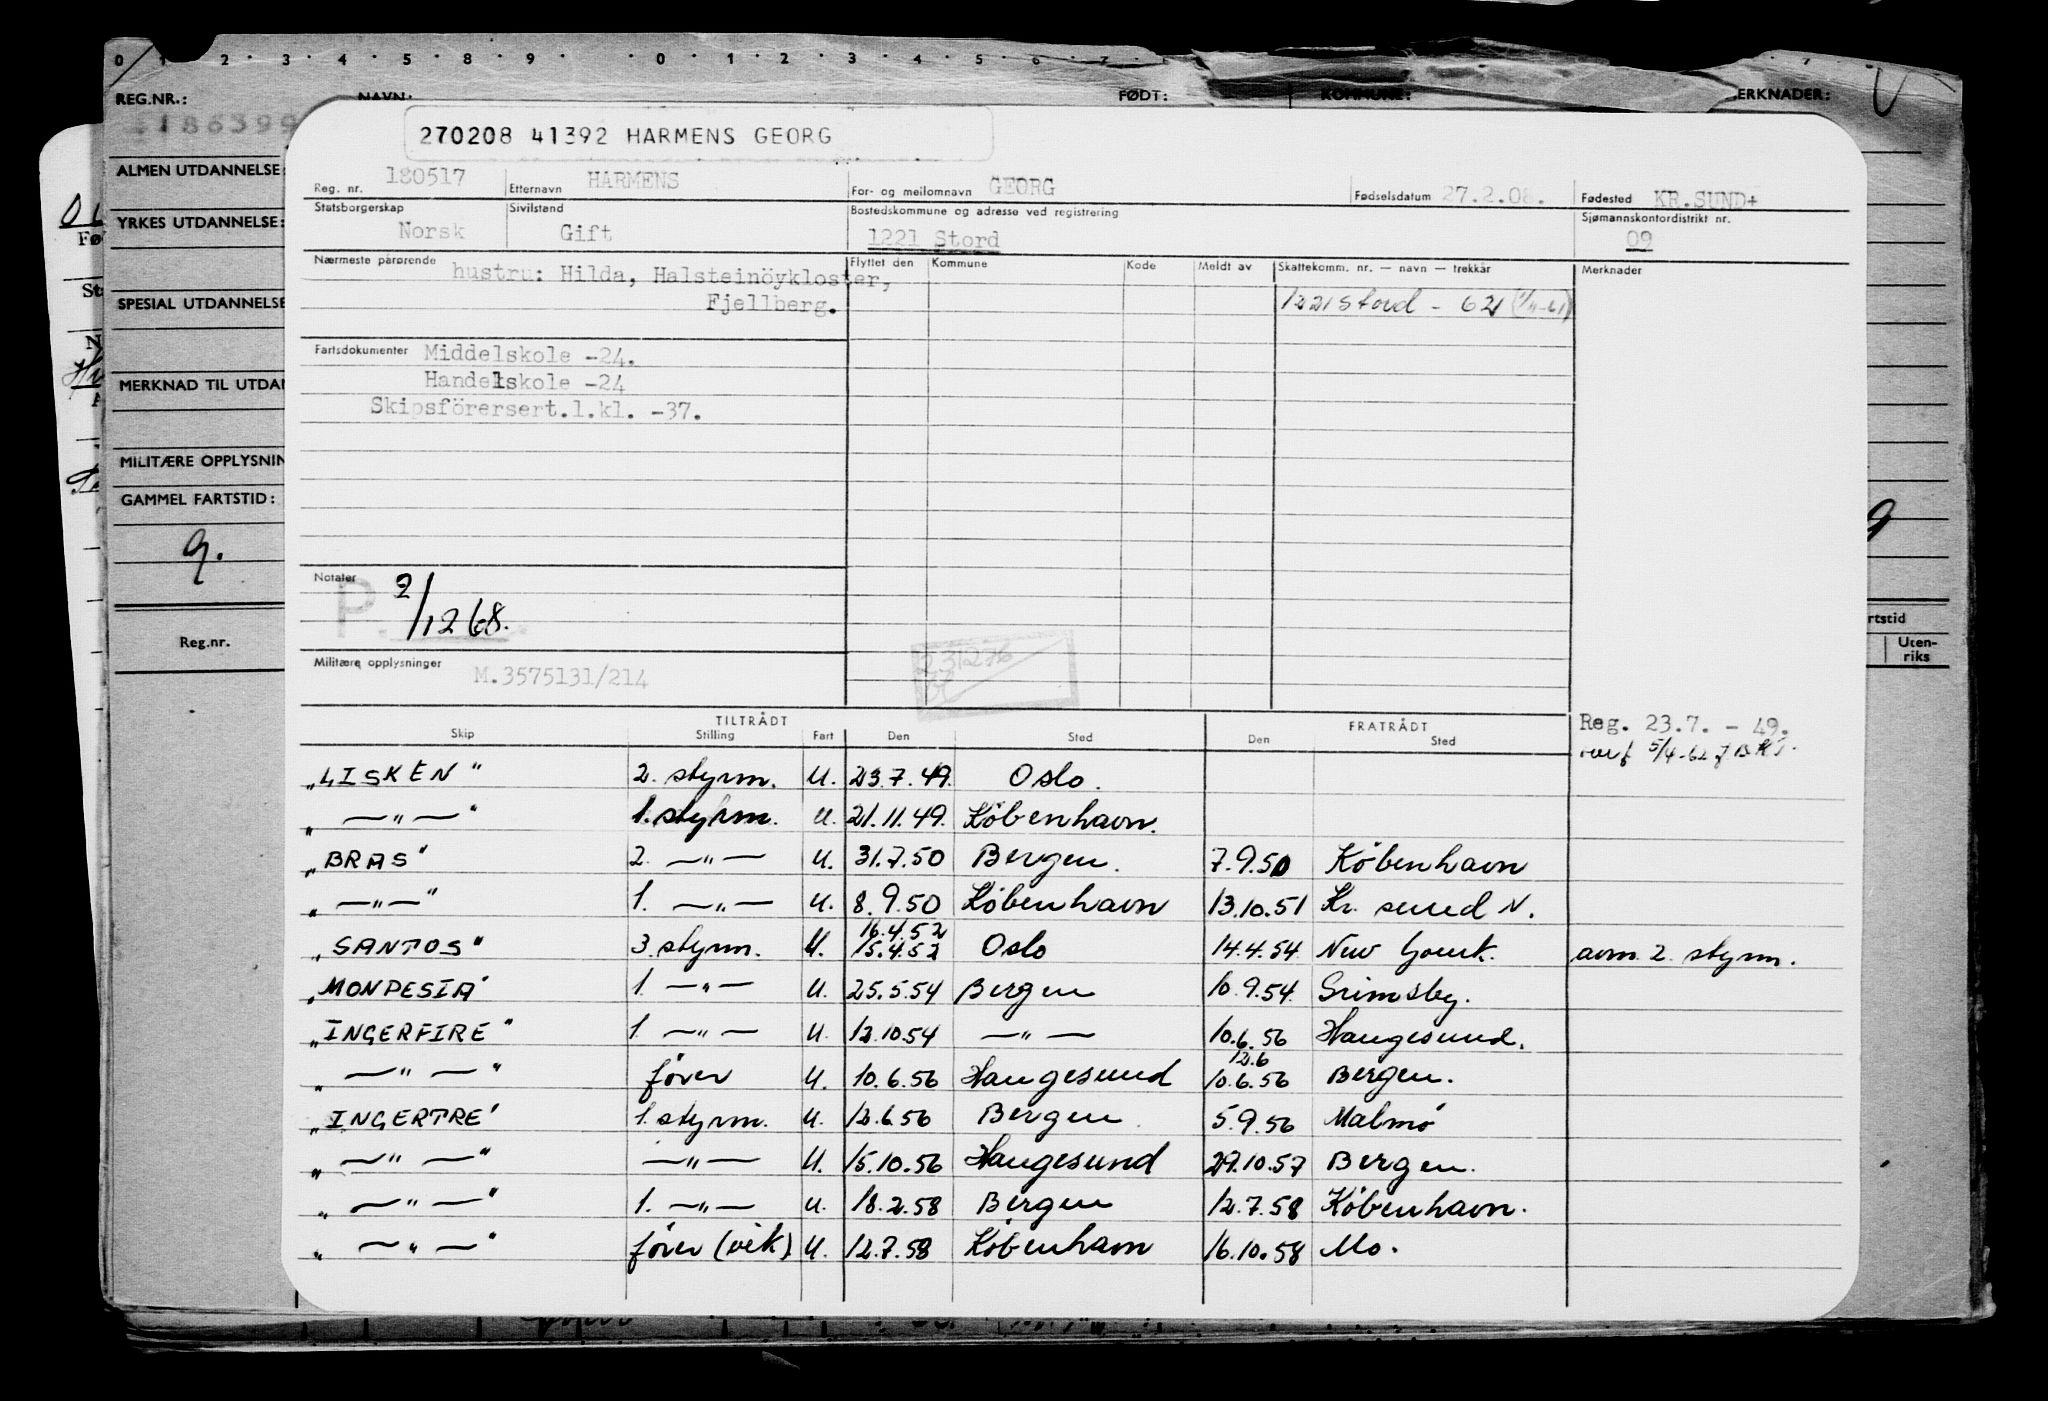 0 1 2 3 4 5 8 9 0 1 2 3 4 5 6 7
REG.NR.: NAVN: FØDT: KOMMUNE: ERKNADER:
186399
270208 41392 HARMENS GEORG
Reg. nr. 180517 Etternavn HARMENS For- og mellomnavn GEORG Fødselsdatum 27.2.08. Fødested KR.SUND+
Statsborgerskap Norsk Sivilstand Gift Bostedskommune og adresse ved registrering 1221 Stord Sjømannskontordistrikt nr. 09
Nærmeste pårørende hustru: Hilda, Halsteinöykloster, Flyttet den Kommune Kode Meldt av Skattekomm. nr. — navn — trekkår Merknader
Fjellberg. 1221 Stord - 62
Fartsdokumenter Middelskole -24.
Handelskole -24
Skipsförersert.1.kl. -37.
ALMEN UTDANNELSE:
YRKES UTDANNELSE:
SPESIAL UTDANNELSE
MERKNAD TIL UTDAN
MILITÆRE OPPLYSNIN
GAMMEL FARTSTID:
9.
Notater P. 2/12 68.
Reg.nr. rtstid
Uten-
riks
Militære opplysninger M.3575131/214
231276
TILTRÅDT FRATRÅDT Reg. 23.7. - 49.
Skip Stilling Fart Den Sted Den Sted 5/4-62
"LISKEN" 2. styrm. U. 23.7.49. Oslo.
" —"— " 1. styrm. U. 21.11.49. København.
"BRAS" 2. —"— U. 31.7.50 Bergen. 7.9.50 København
" —"— " 1. —"— U. 8.9.50 København 13.10.51 Kr. sund N.
16.4.52
"SANTOS" 3. styrm. U. 15.4.52 Oslo 14.4.54 New Yourk. avm. 2. styrm.
"MONPESIA" 1. —"— U. 25.5.54 Bergen 10.9.54. Grimsby.
"INGERFIRE" 1. —"— U. 12.10.54 —"— 10.6.56 Haugesund.
12.6
" —"— " fører U. 10.6.56 Haugesund 10.6.56 Bergen.
"INGERTRE" 1. styrm. U. 12.6.56 Bergen 5.9.56 Malmö
" —"— " —"— U. 15.10.56 Haugesund 29.10.57 Bergen.
" —"— " 1. —"— U. 18.2.58 Bergen 12.7.58 København.
" —"— " fører (vik) U. 12.7.58 København 16.10.58 Mo.